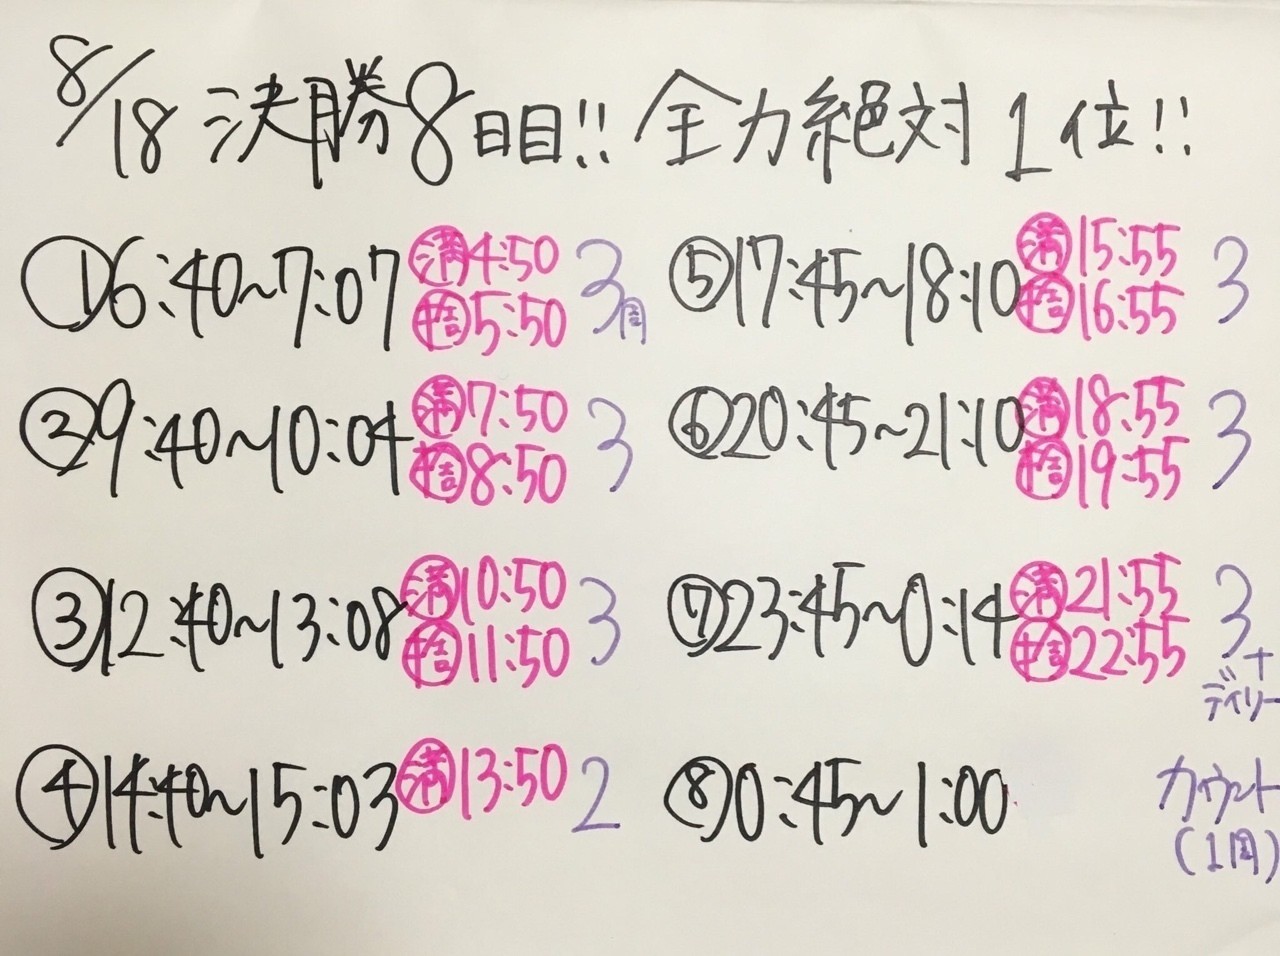 8/18 決勝8日目!! 全力絶対1位!!
①6:40~7:07 満4:50 捨5:50 3周
②9:40~10:04 満7:50 捨8:50 3
③12:40~13:08 満10:50 捨11:50 3
④14:40~15:03 満13:50 2
⑤17:45~18:10 満15:55 捨16:55 3
⑥20:45~21:10 満18:55 捨19:55 3
⑦23:45~0:14 満21:55 捨22:55 3+デイリー
⑧0:45~1:00 カウント(1周)